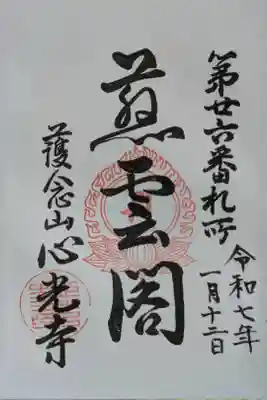 第廿六番札所
令和七年
一月十二日
慈雲閣
護念山心光寺